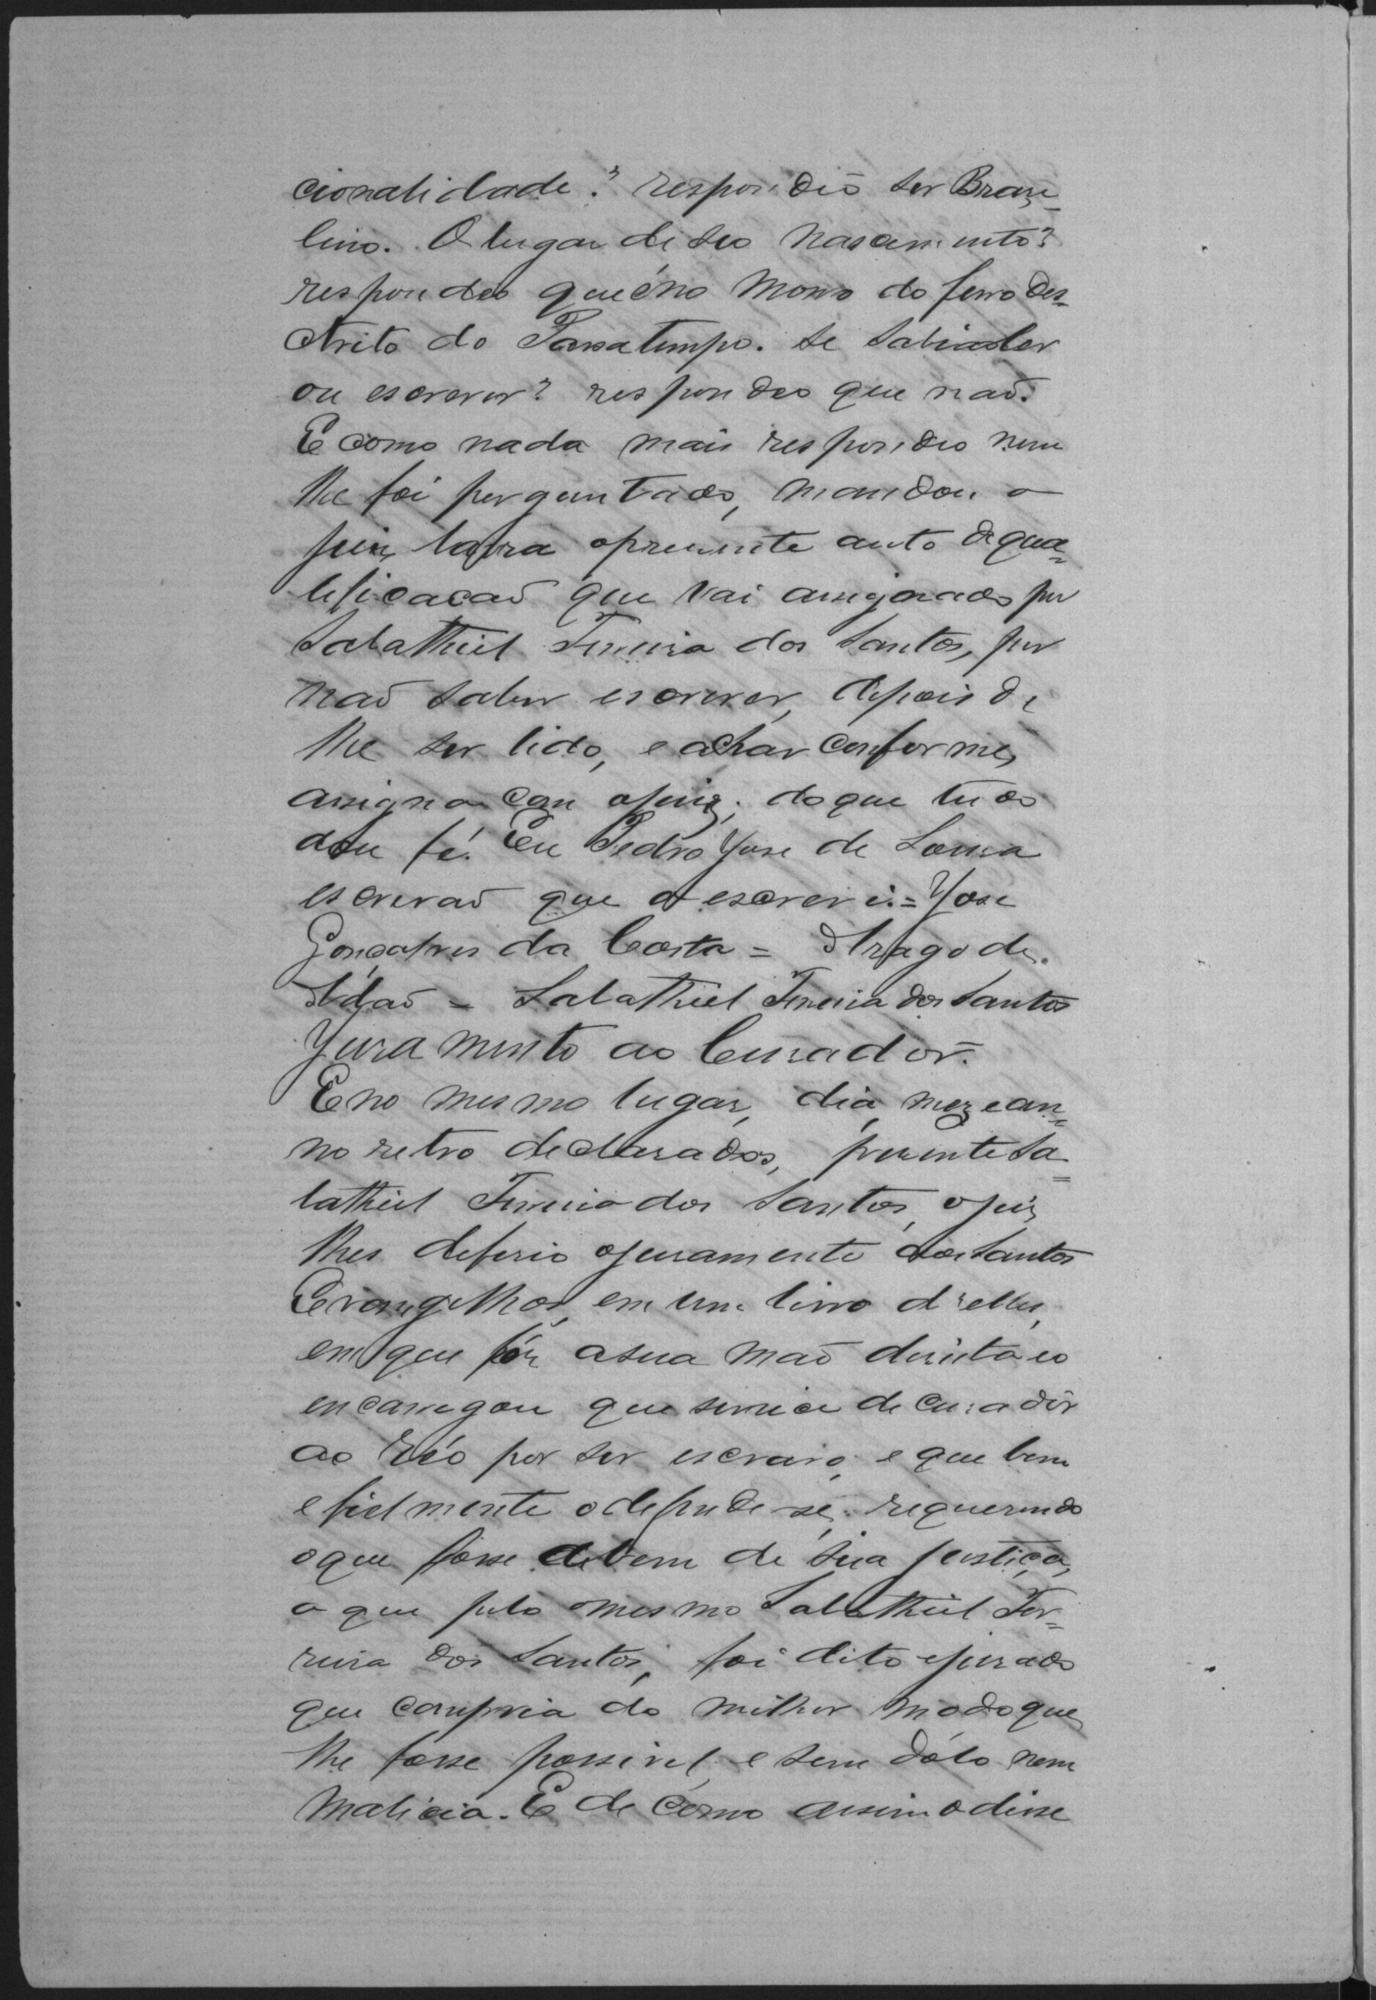 cionalidade? respondeo ser Brazi-
leiro. O lugar de seo nascimento?
respondeo que é no Morro do ferro Des-
ctrito do Passatempo. Se sabia ler
ou escrever? respondeo que naõ.
E como nada mais respondeo nem
lhe foi perguntado, mandou o
juiz lavra o presente auto de qua-
lificacaõ que vai assignado por
Salathiel Ferreira dos Santos, por
naõ saber escrever, depois de
lhe ser lido, e achar conforme,
assigna com o juiz; do que tudo
dou fé. Eu Pedro Jose de Sousa
escrivaõ que o escrevi. = Jose
Gonçalves da Costa = Thiago de
Salathiel Ferreira dos Santos
Juramento ao Curador.
E no mesmo lugar, dia, mez e an-
no retro declarados, presente Sa-
lathiel Ferreira dos Santos, o juiz
lhes deferio o juramento dos Santos
Evangelhos, em um livro d'elles,
em que pôz a sua maõ direita e o
encarregou que service de curador
ao réo por ser escravo, e que bem
e fielmente o defende-se, requerendo
o que fosse de bem de sua justiça,
o que pelo mesmo Salathiel Fer-
reira dos Santos, foi dito e jurado
que compria do milhor modo que
lhe fosse possivel, e sem dólo nem
malicia. E de como assim o disse